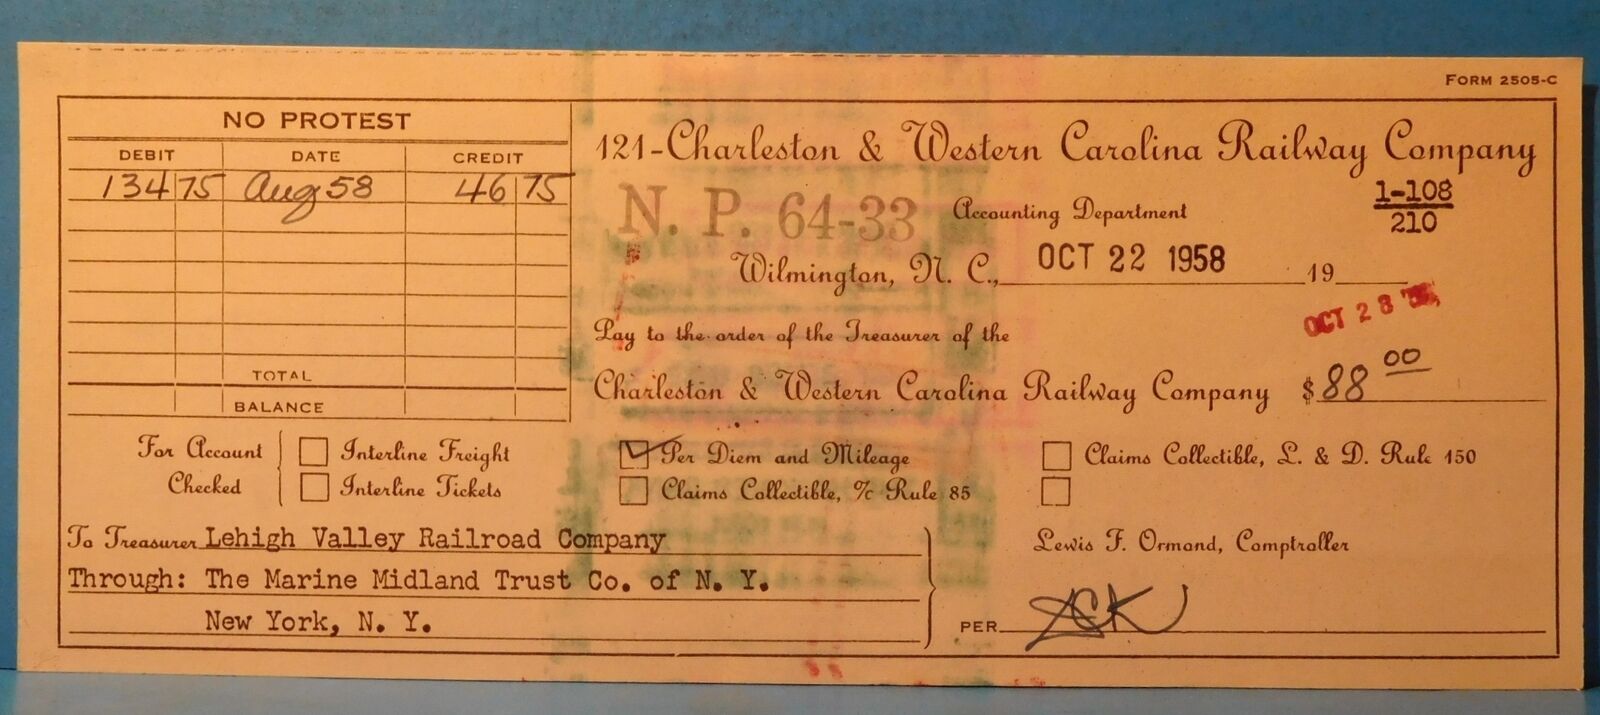 FORM 2505-C
NO PROTEST
DEBIT DATE CREDIT
134 75 Aug 58 46 75
TOTAL
BALANCE
121-Charleston & Western Carolina Railway Company
N. P. 64-33 Accounting Department 1-108
210
Wilmington, N. C., OCT 22 1958 19
OCT 28
Pay to the order of the Treasurer of the
Charleston & Western Carolina Railway Company $88 00
For Account Checked
Interline Freight
Interline Tickets
Per Diem and Mileage
Claims Collectible, O/C Rule 85
Claims Collectible, L. & D. Rule 150
To Treasurer Lehigh Valley Railroad Company
Through: The Marine Midland Trust Co. of N. Y.
New York, N. Y.
Lewis F. Ormond, Comptroller
PER